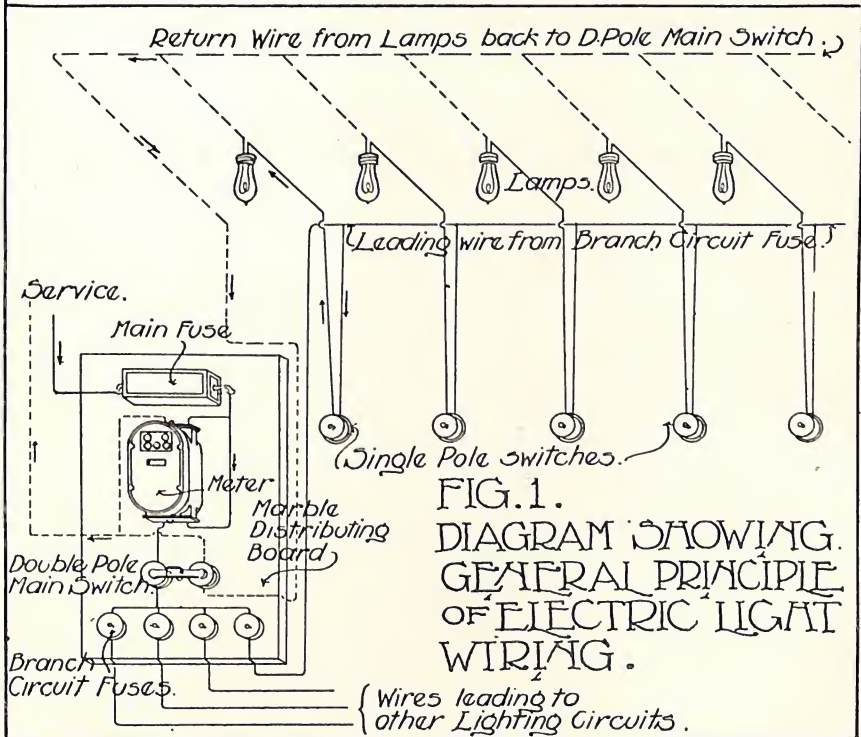 Return Wire from Lamps back to D.Pole Main Switch.
Lamps.
Leading wire from Branch Circuit Fuse.
Service.
Main Fuse
Meter
Marble
Distributing
Board
Double Pole
Main Switch.
Branch
Circuit Fuses.
Single Pole switches.
FIG. 1.
DIAGRAM SHOWING.
GENERAL PRINCIPLE
OF ELECTRIC LIGHT
WIRING.
Wires leading to
other Lighting Circuits.